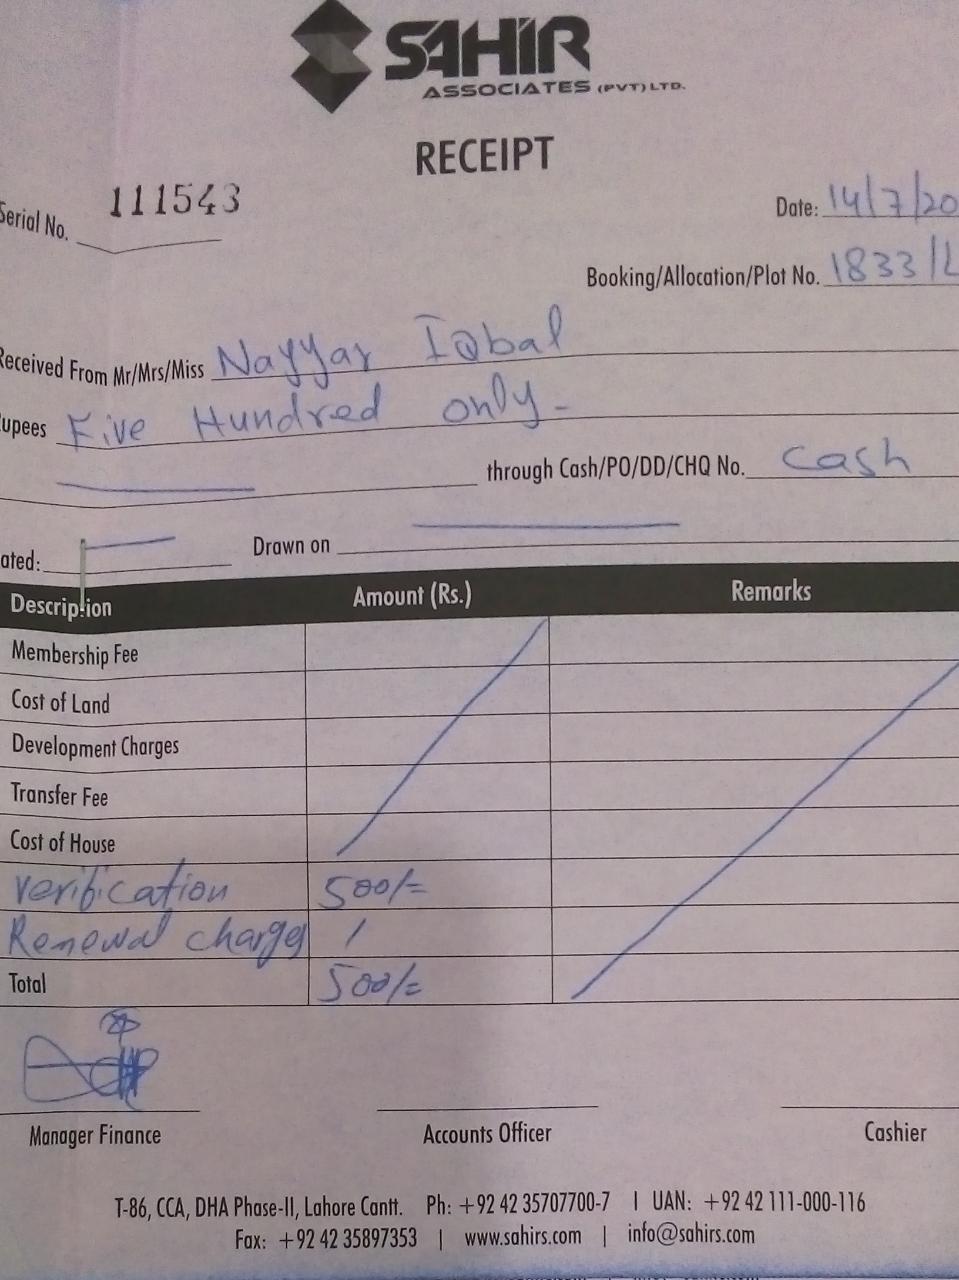 SAHIR
ASSOCIATES (PVT) LTD.
RECEIPT
Serial No. 111543
Date: 14/7/20
Booking/Allocation/Plot No. 1833/L
Received From Mr/Mrs/Miss Nayyar Iqbal
upees Five Hundred only-
through Cash/PO/DD/CHQ No. Cash
ated: Drawn on
Description Amount (Rs.) Remarks
Membership Fee
Cost of Land
Development Charges
Transfer Fee
Cost of House
Verification 500/=
Renewal charges /
Total 500/=
Manager Finance Accounts Officer Cashier
T-86, CCA, DHA Phase-II, Lahore Cantt. Ph: +92 42 35707700-7 | UAN: +92 42 111-000-116
Fax: +92 42 35897353 | www.sahirs.com | info@sahirs.com